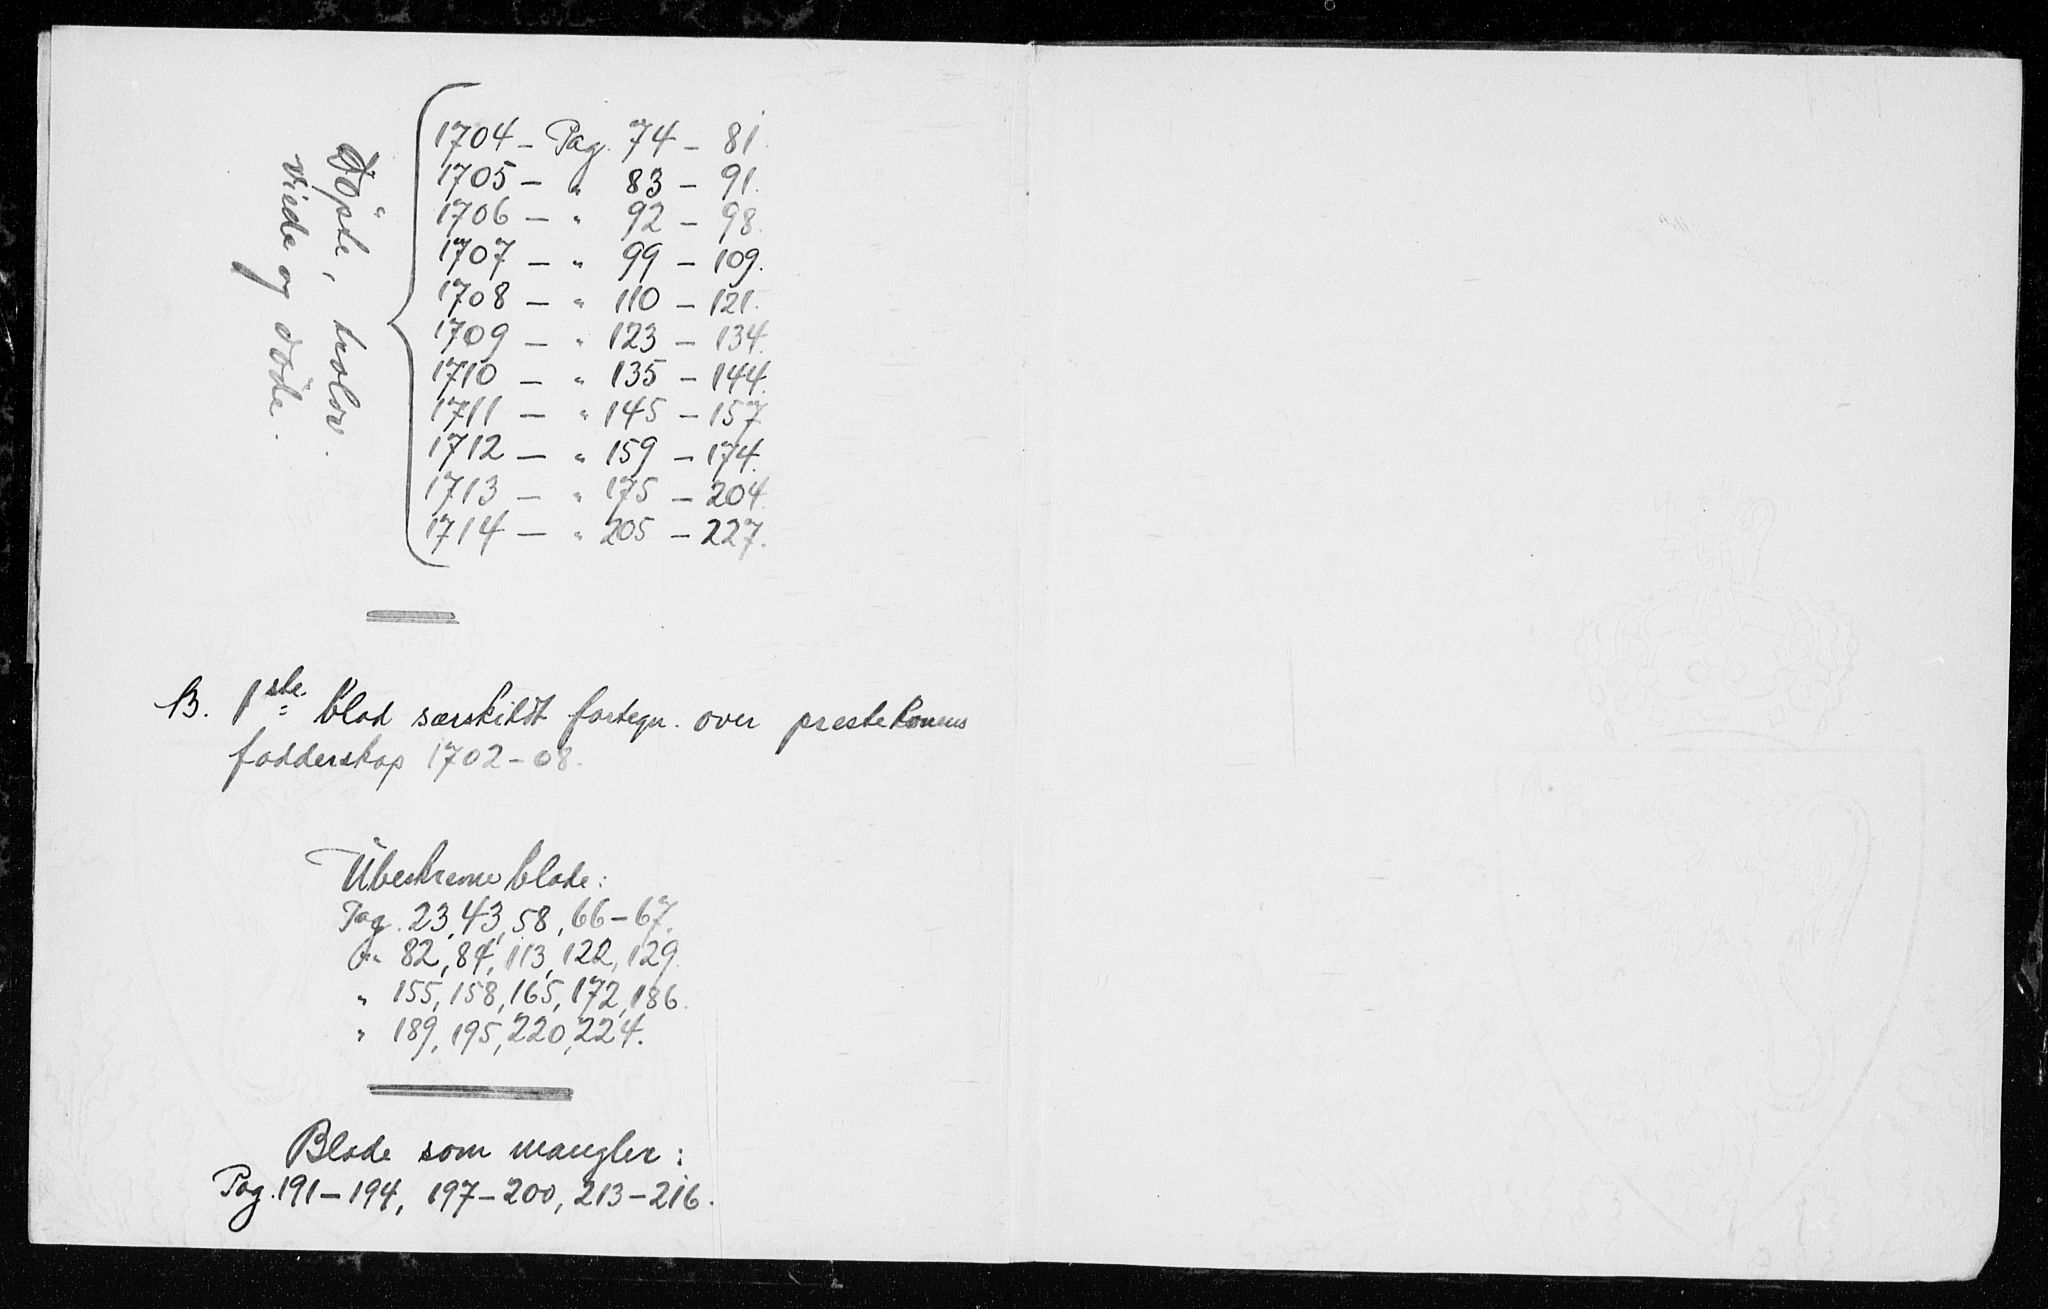 Döpte, trolov.
viede og döde.
1704 – Pag. 74 – 81.
1705 – " 83 – 91.
1706 – " 92 – 98.
1707 – " 99 – 109.
1708 – " 110 – 121.
1709 – " 123 – 134.
1710 – " 135 – 144.
1711 – " 145 – 157
1712 – " 159 – 174.
1713 – " 175 – 204.
1714 – " 205 – 227.
B. 1ste blad særskildt fortegn. over prestekonens
fadderskap 1702–08.
Ubeskrevne blade:
Pag. 23, 43, 58, 66–67.
" 82, 84, 113, 122, 129.
" 155, 158, 165, 172, 186.
" 189, 195, 220, 224.
Blade som mangler:
Pag. 191–194, 197–200, 213–216.